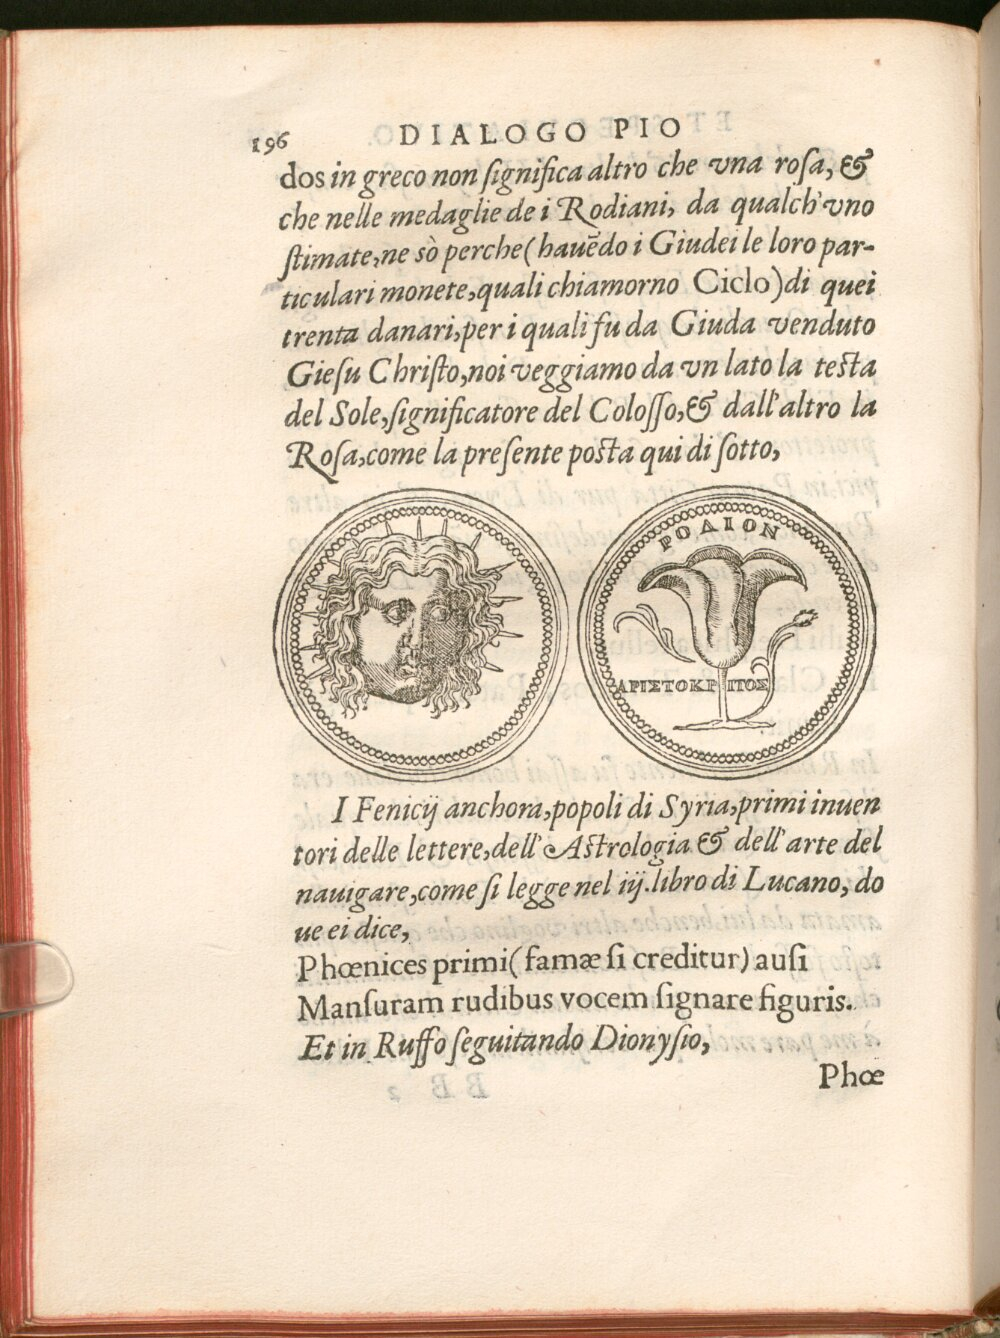 196 DIALOGO PIO
dos in greco non ſignifica altro che vna roſa, &
che nelle medaglie de i Rodiani, da qualch'vno
ſtimate, ne sò perche (hauẽdo i Giudei le loro par-
ticulari monete, quali chiamorno Ciclo) di quei
trenta danari, per i quali fu da Giuda venduto
Gieſu Chriſto, noi veggiamo da vn lato la teſta
del Sole, ſignificatore del Coloſſo, & dall'altro la
Roſa, come la preſente poſta qui di ſotto,
ΡΟΔΙΟΝ
ΑΡΙΣΤΟΚΡΙΤΟΣ
I Fenicij anchora, popoli di Syria, primi inuen
tori delle lettere, dell'Aſtrologia & dell'arte del
nauigare, come ſi legge nel iij. libro di Lucano, do
ue ei dice,
Phœnices primi (famæ ſi creditur) auſi
Manſuram rudibus vocem ſignare figuris.
Et in Ruffo ſeguitando Dionyſio,
Phœ